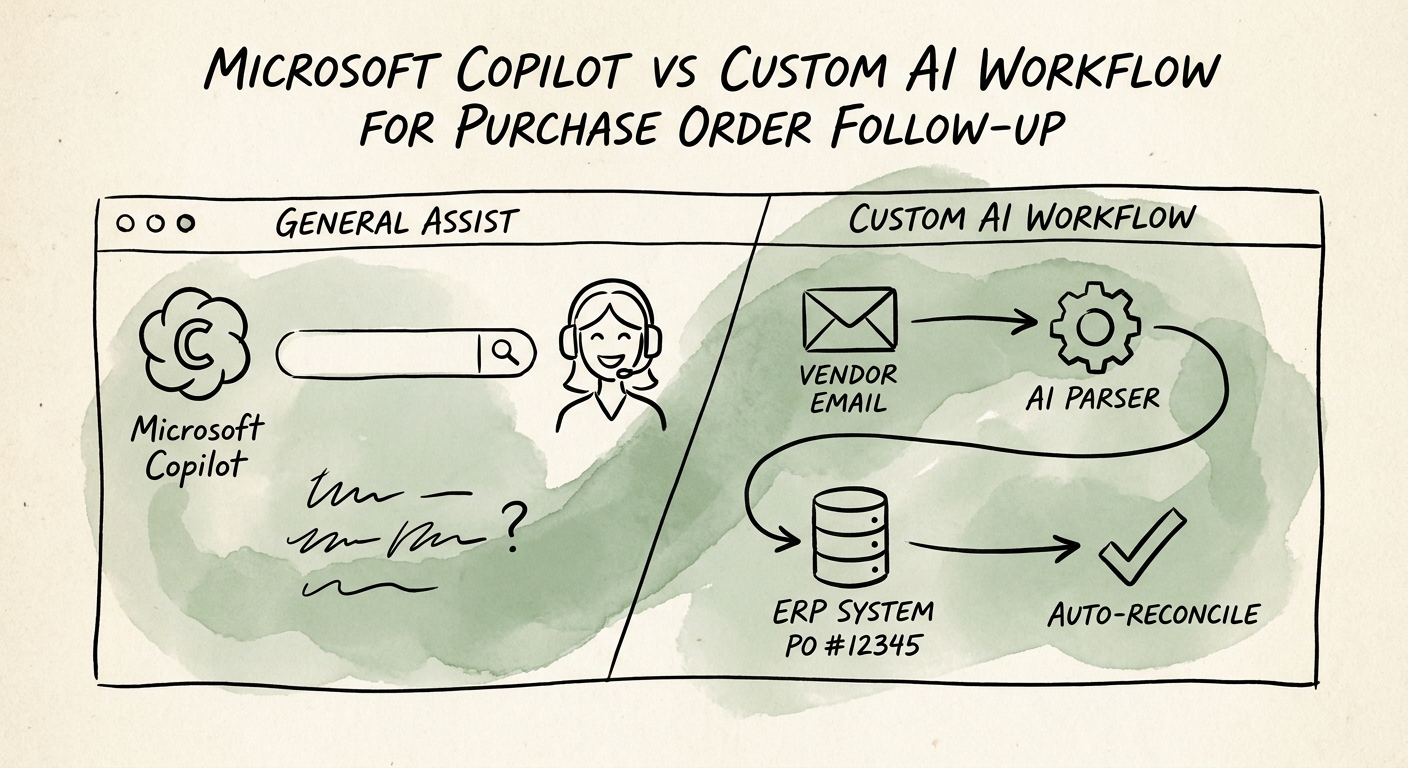 MICROSOFT COPILOT VS CUSTOM AI WORKFLOW
FOR PURCHASE ORDER FOLLOW-UP
GENERAL ASSIST
CUSTOM AI WORKFLOW
C
Microsoft
Copilot
?
VENDOR
EMAIL
AI PARSER
ERP SYSTEM
PO #12345
AUTO-RECONCILE